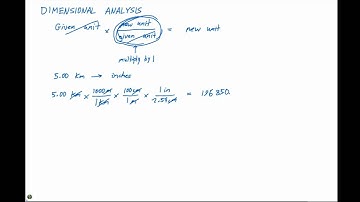 DIMENSIONAL ANALYSIS
Given unit × new unit / given unit = new unit
multiply by 1
5.00 km → inches
5.00 km × 1000m / 1km × 100cm / 1m × 1 in / 2.54cm = 196850.